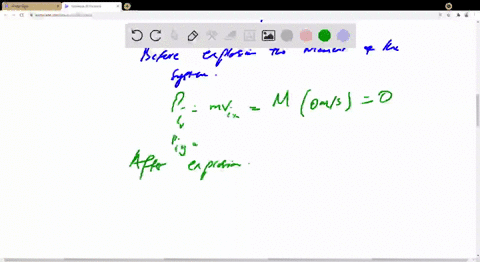 Before explosion the moment of the
System.
P_i = mv_ix = M (0m/s) = 0
P_iy =
After explosion.